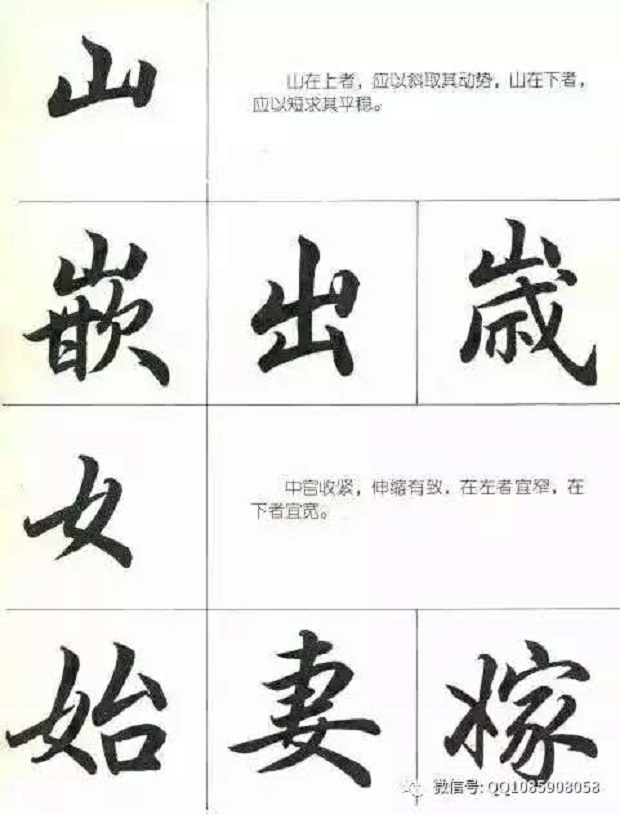 山
山在上者，应以斜取其动势，山在下者，
应以短求其平稳。
嵌 出 歳
女
中宫收紧，伸缩有致，在左者宜窄，在
下者宜宽。
始 妻 嫁
微信号: QQ1085908058